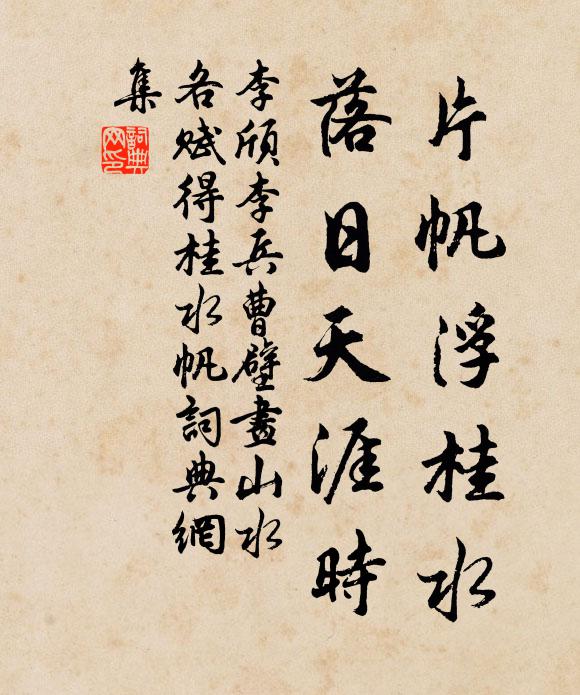 片帆浮桂水
落日天涯時
李頎李兵曹壁畫山水
各賦得桂水帆詞典網
集
詞典
网印